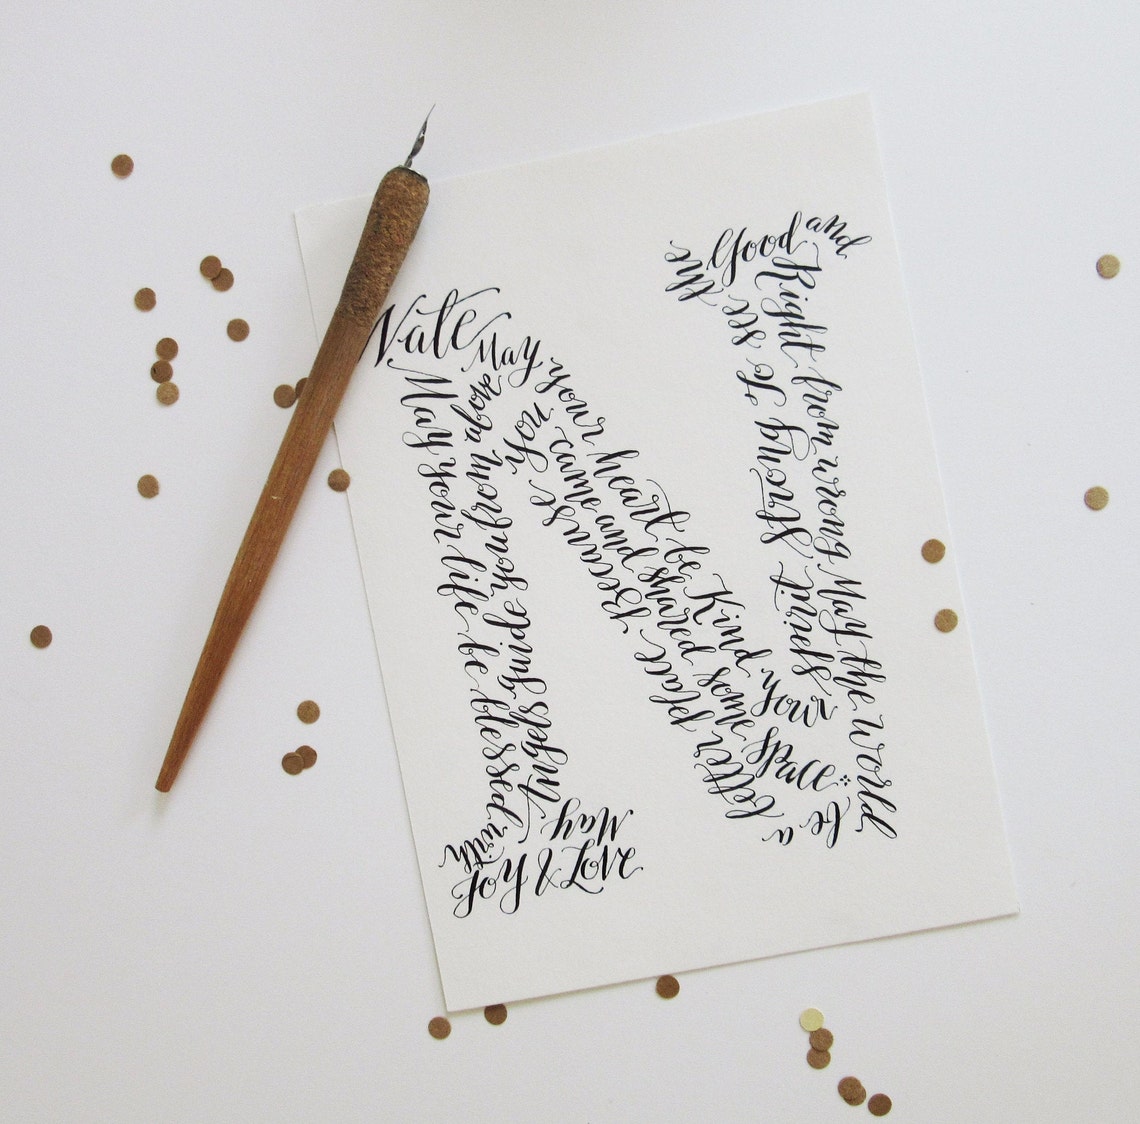 Nate
May your life be blessed with
Joy & Love
May
angels
guide you from above
May your heart be Kind
Your
spirit strong to see the
Good and
Right from wrong May the world
be a
better place Because
you
came and shared some
Space